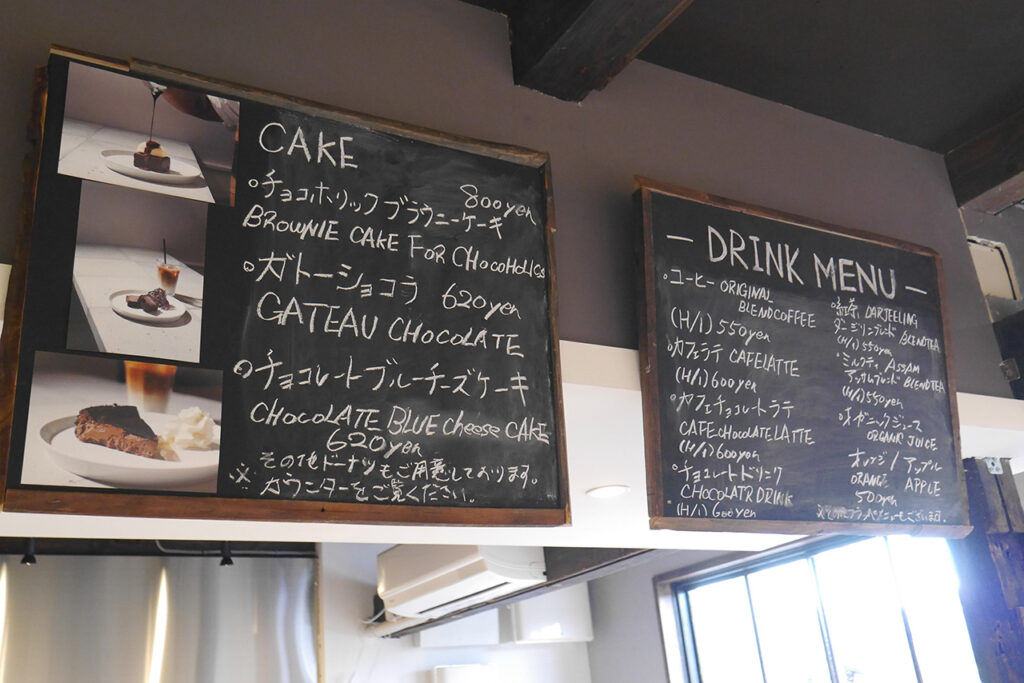 CAKE
チョコホリックブラウニーケーキ 800yen
BROWNIE CAKE FOR CHOCOHOLICS
ガトーショコラ 620yen
GATEAU CHOCOLATE
チョコレートブルーチーズケーキ
CHOCOLATE BLUE cheese CAKE
620yen
※ その他ドーナツもご用意しております。
カウンターをご覧ください。
— DRINK MENU —
コーヒー ORIGINAL
BLENDCOFFEE
(H/I) 550yen
カフェラテ CAFELATTE
(H/I) 600yen
カフェチョコレートラテ
CAFE CHOCOLATE LATTE
(H/I) 600yen
チョコレートドリンク
CHOCOLATR DRINK
(H/I) 600yen
紅茶 DARJEELING
ダージリンブレンド BLENDTEA
(H/I) 550yen
ミルクティ ASSAM
アッサムブレンド BLENDTEA
(H/I) 550yen
オーガニックジュース
ORGANIC JUICE
オレンジ / アップル
ORANGE APPLE
500yen